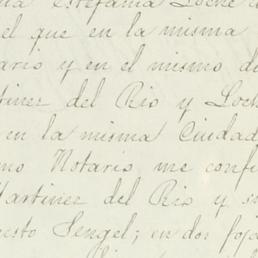 na Estefania Loche de
el que en la misma
ario y en el mismo di
tinez del Rio y Loch
en la misma Ciudad
mo Notario me confi
Martinez del Rio y s
usto Sengel; en dos foja